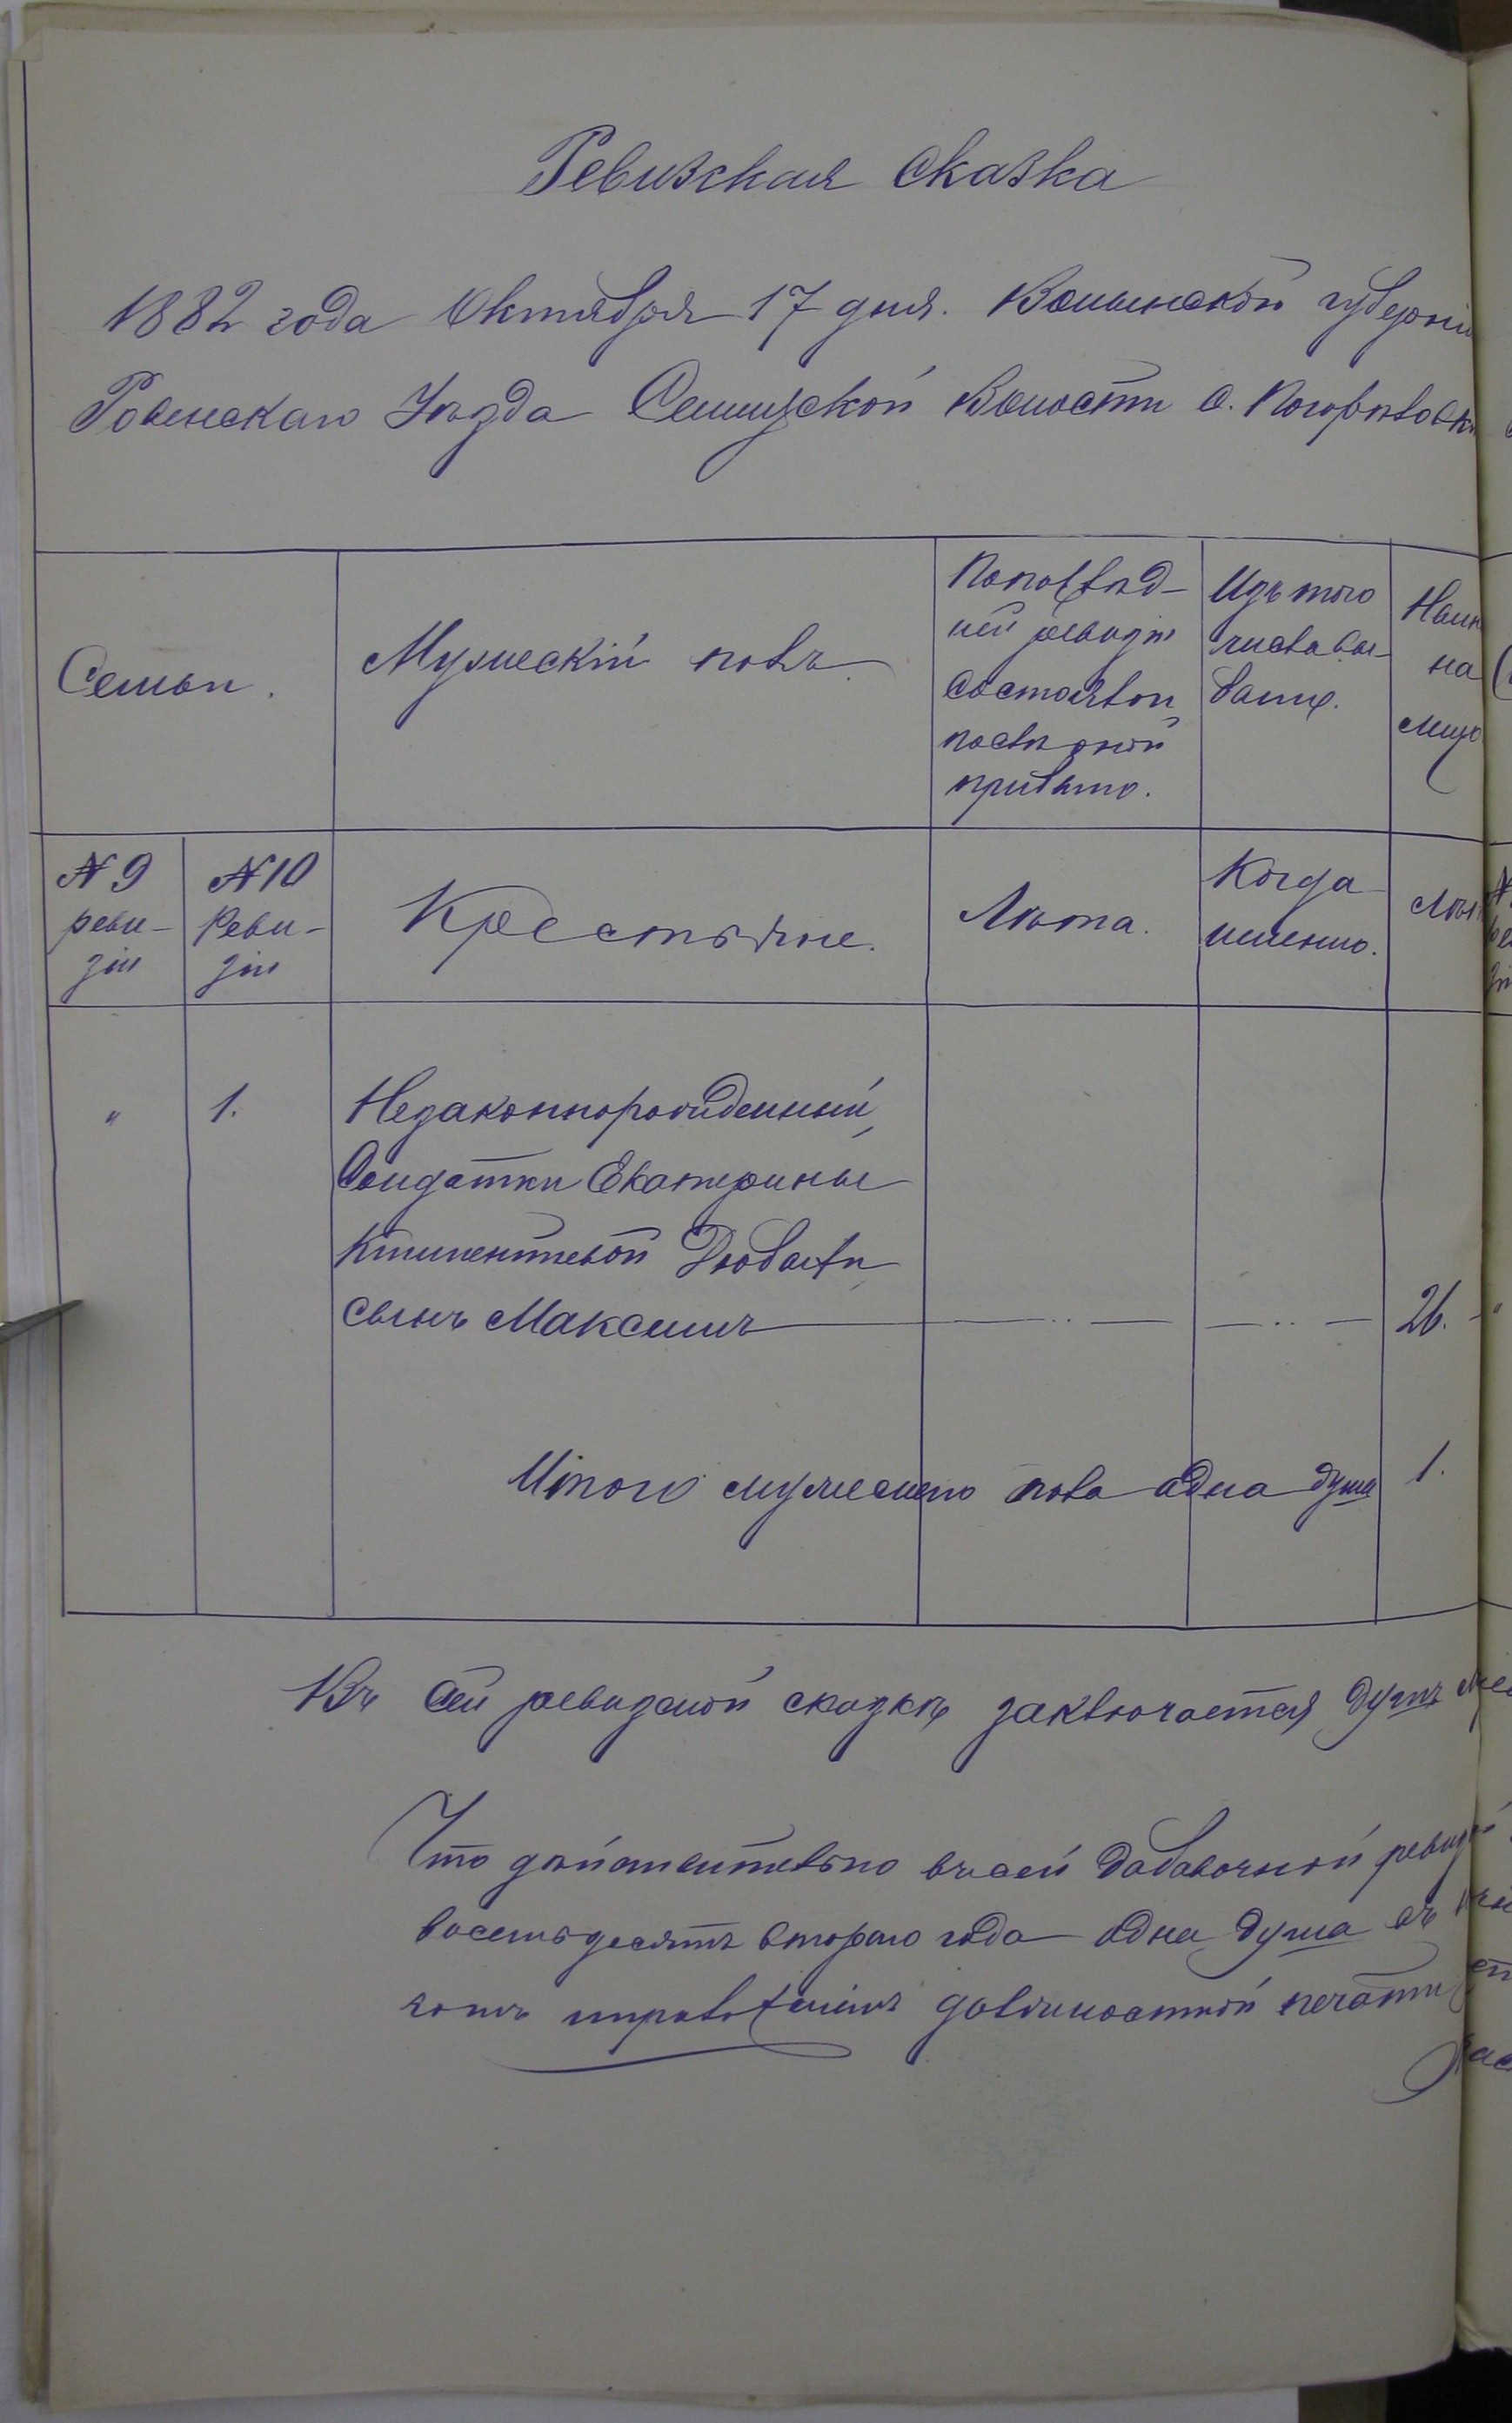 Ревизская Сказка
1882 года Октября 17 дня. Волынской губерніи
Ровенскаго Уѣзда Волости с. Погорѣловки
Семьи.
Мужескій полъ.
По послѣд-
ней ревизіи
состояло и
послѣ оной
прибыло.
Изъ того
числа вы-
было.
на
лицо
№ 9
реви-
зіи
№ 10
Реви-
зіи
Крестьяне.
Лѣта.
Когда
именно.
Лѣт
" 1. Незаконнорожденный
Солдатки Екатерины
сынъ Максимъ — " — — " — 26.
Итого мужеского пола одна душа 1.
Въ сей ревизской сказкѣ заключается душъ
Что дѣйствительно въ сей добавочной
восемьдесятъ втораго года одна душа въ
должностной печати